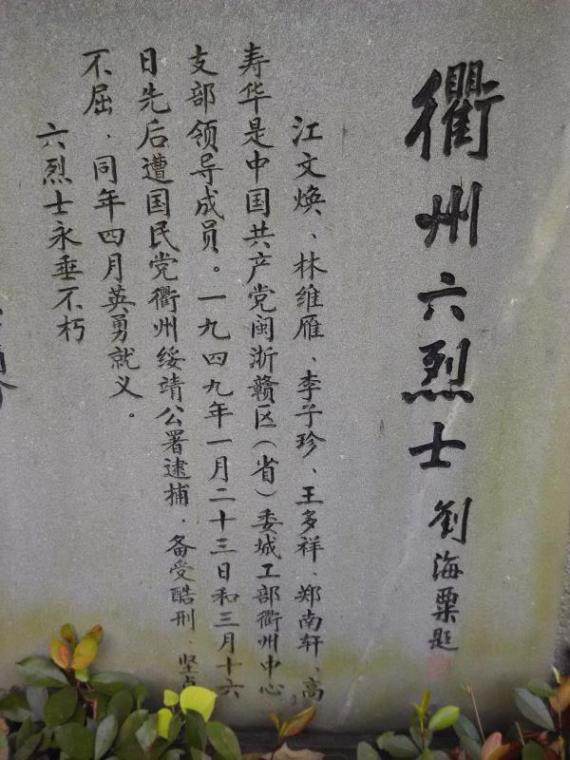 衢州六烈士
刘海粟题
江文焕、林维雁、李子珍、王多祥、郑南轩、高
寿华是中国共产党闽浙赣区(省)委城工部衢州中心
支部领导成员。一九四九年一月二十三日和三月十六
日先后遭国民党衢州绥靖公署逮捕，备受酷刑，坚贞
不屈，同年四月英勇就义。
六烈士永垂不朽